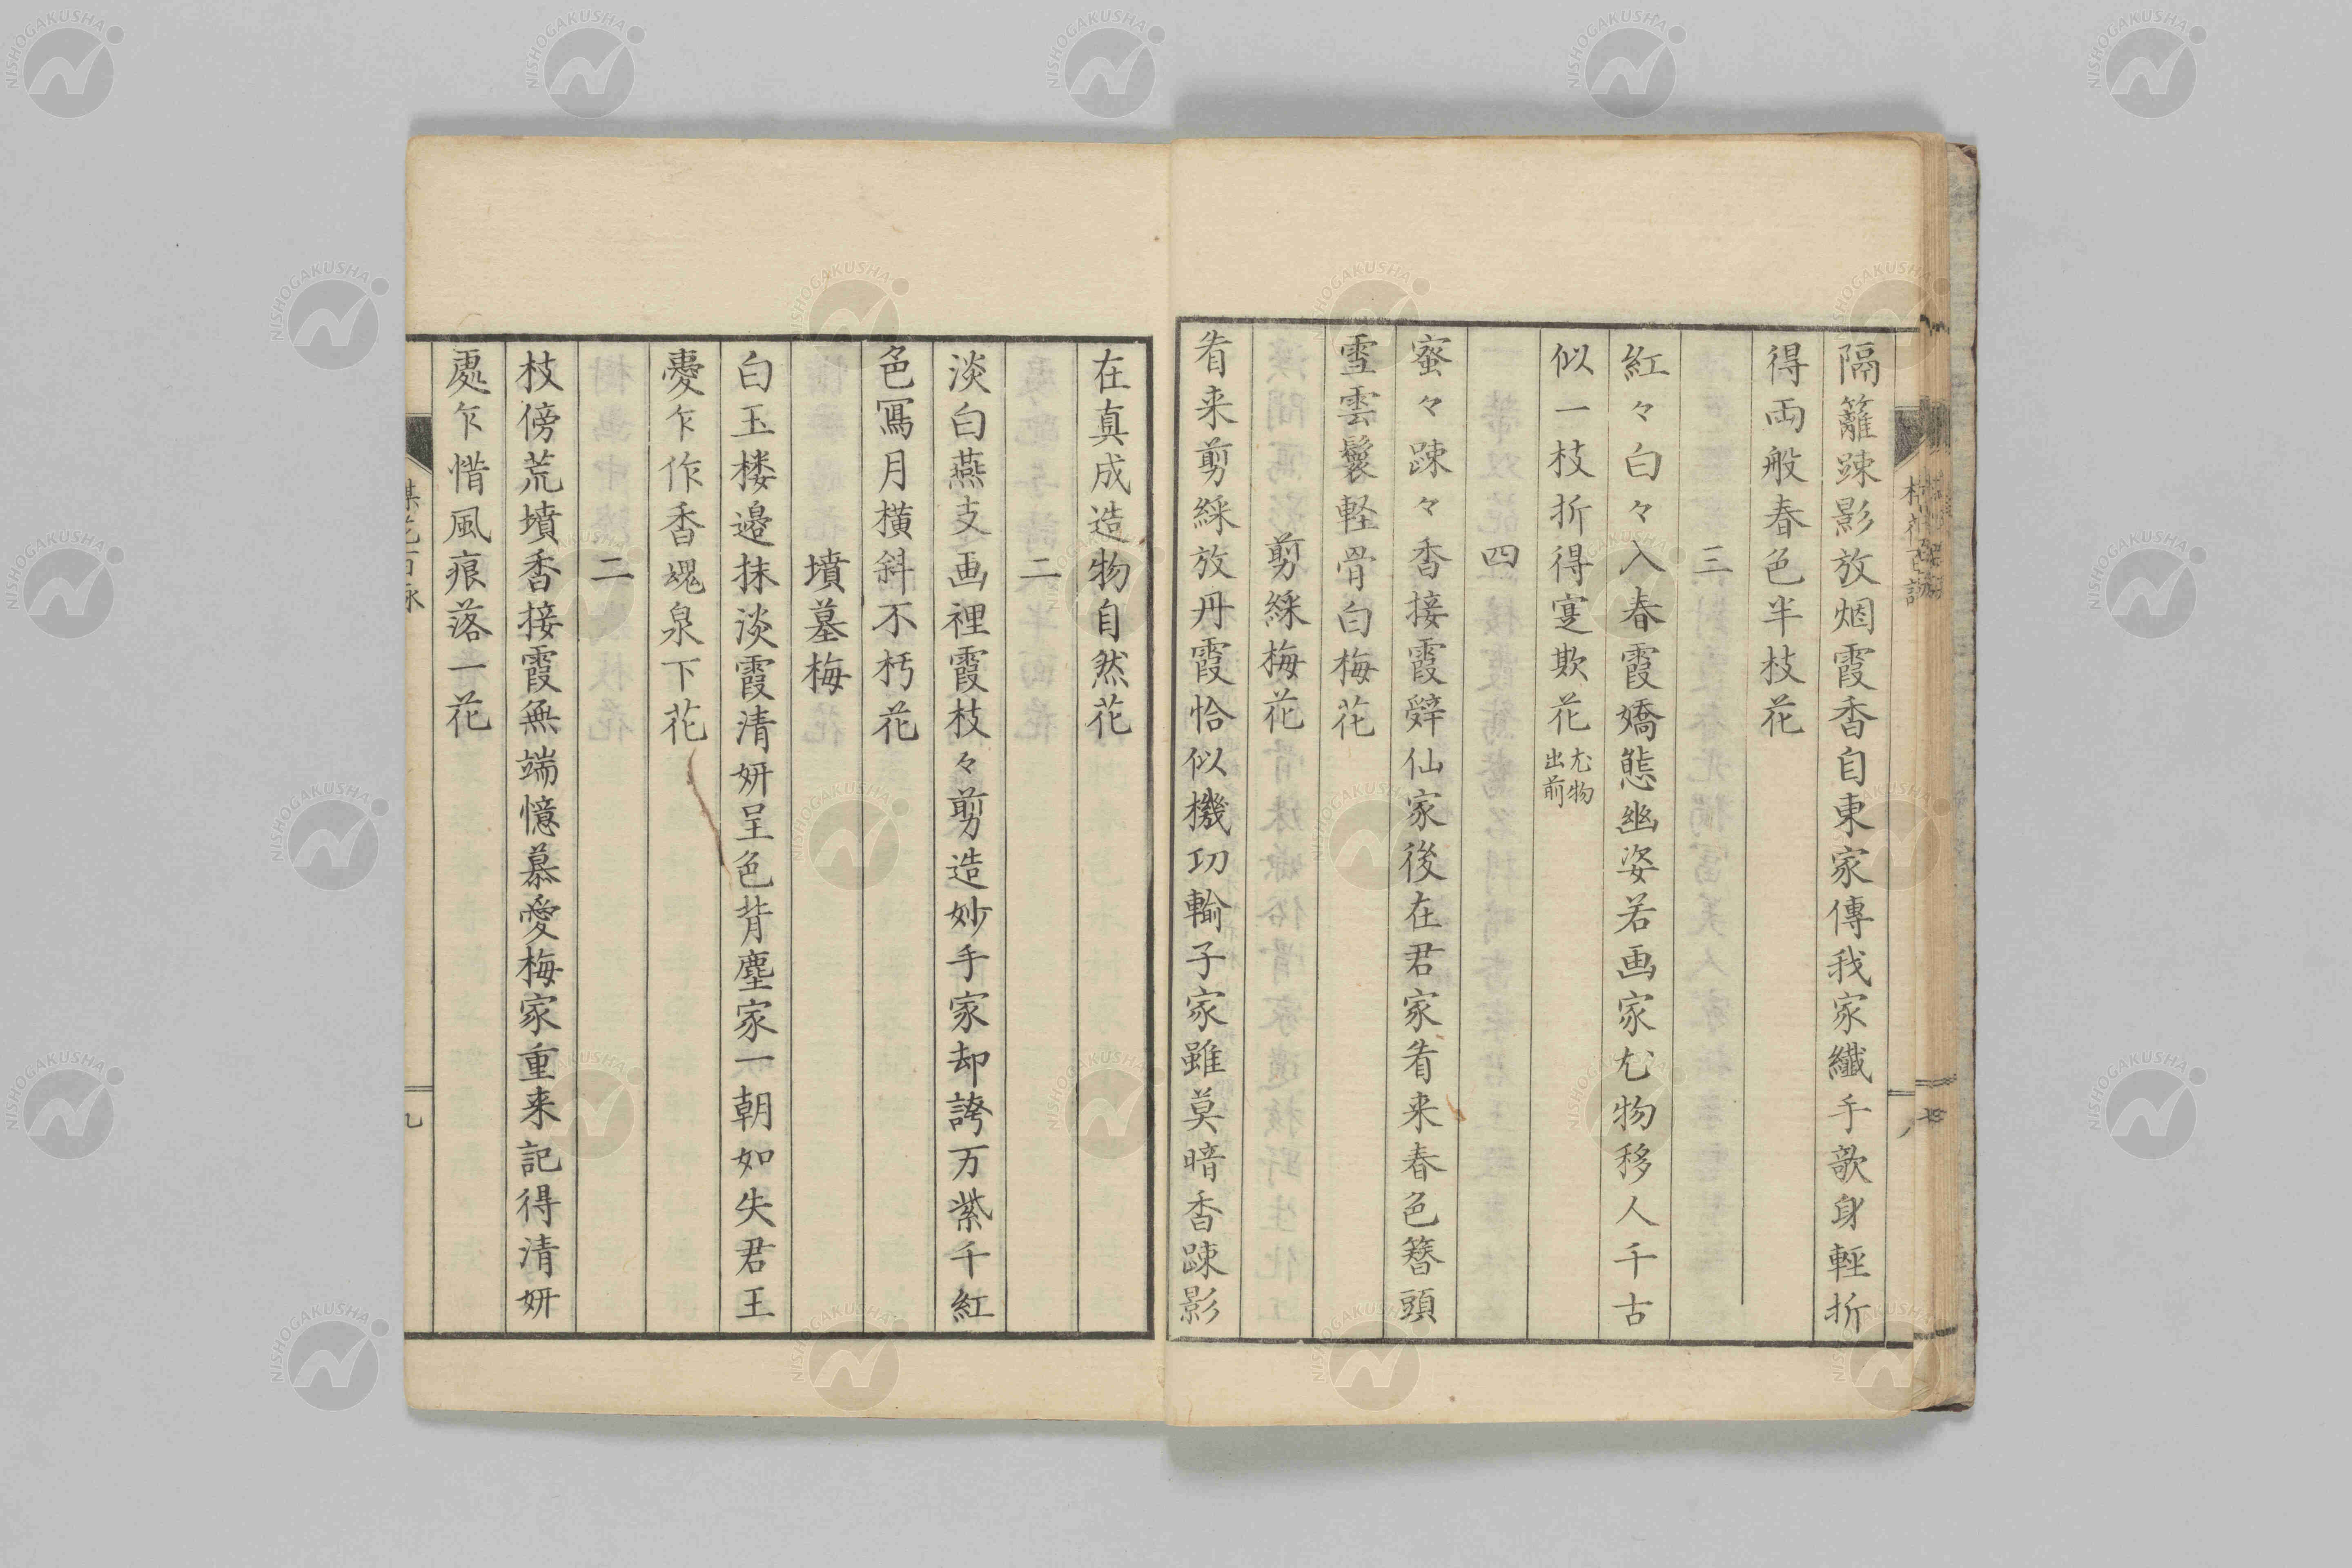 隔籬踈影放烟霞香自東家傳我家纖手歌身輕折
得両般春色半枝花
三
紅々白々入春霞嬌態幽姿若画家尤物移人千古
似一枝折得寔欺花尤物出前
四
蜜々踈々香接霞辤仙家後在君家看来春色簪頭
雪雲鬟軽骨白梅花
剪綵梅花
看来剪綵放丹霞恰似機功輸子家雖莫暗香踈影
在真成造物自然花
二
淡白燕支画裡霞枝々剪造妙手家却誇万紫千紅
色冩月横斜不朽花
墳墓梅
白玉楼邉抹淡霞清妍呈色背塵家一朝如失君王
憂乍作香魂泉下花
二
枝傍荒墳香接霞無端憶慕愛梅家重来記得清妍
處乍惜風痕落一花
九
NISHOGAKUSHA